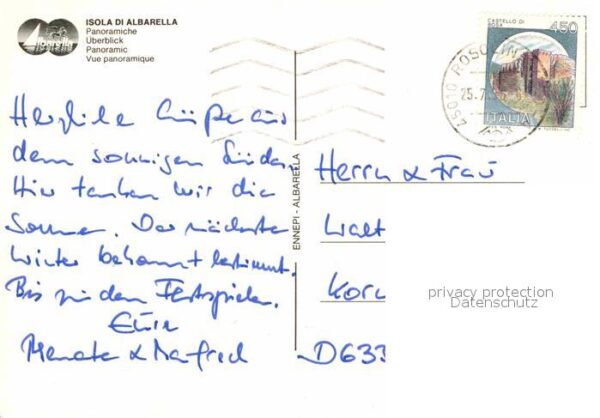 ISOLA DI ALBARELLA
Panoramiche
Überblick
Panoramic
Vue panoramique
Herzliche Grüße aus
dem sonnigen Süden.
Hier tanken wir die
Sonne. Der nächste
Winter bekommt bestimmt.
Bis zu den Festspielen.
Eure
Renate & Manfred
ENNEPI - ALBARELLA
CASTELLO DI
ROSA
450
ITALIA
45010 ROSOLIN
25.7
Herrn & Frau
Walt
Kor
D633
privacy protection
Datenschutz